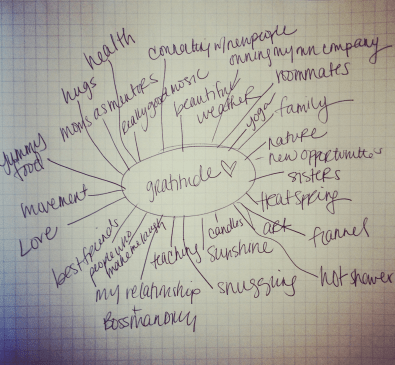 health
connecting w/ new people
owning my own company
hugs
moms as mentors
really good music
beautiful
weather
roommates
yoga
family
yummy
food
nature
new opportunities
gratitude ♡
sisters
movement
heatspring
Love
art
flannel
best friends
people who
make me laugh
teaching
candles
sunshine
hot shower
my relationship
snuggling